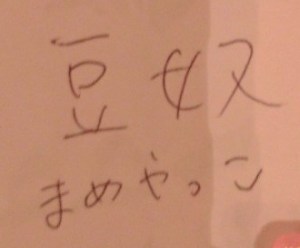 豆奴
まめやっこ